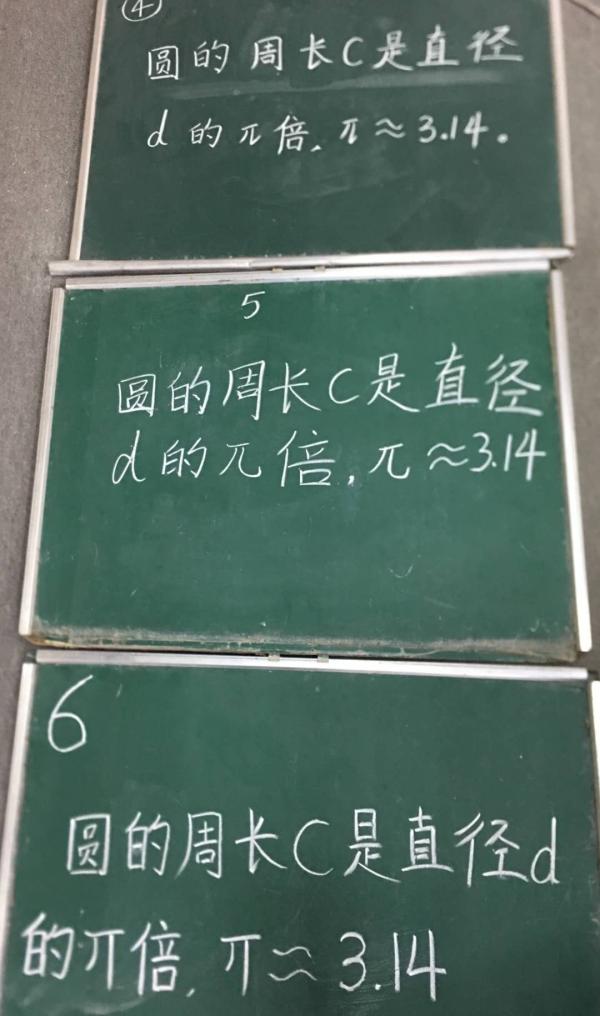 ④
圆的周长C是直径
d的π倍,π≈3.14。
5
圆的周长C是直径
d的π倍,π≈3.14
6
圆的周长C是直径d
的π倍,π≈3.14